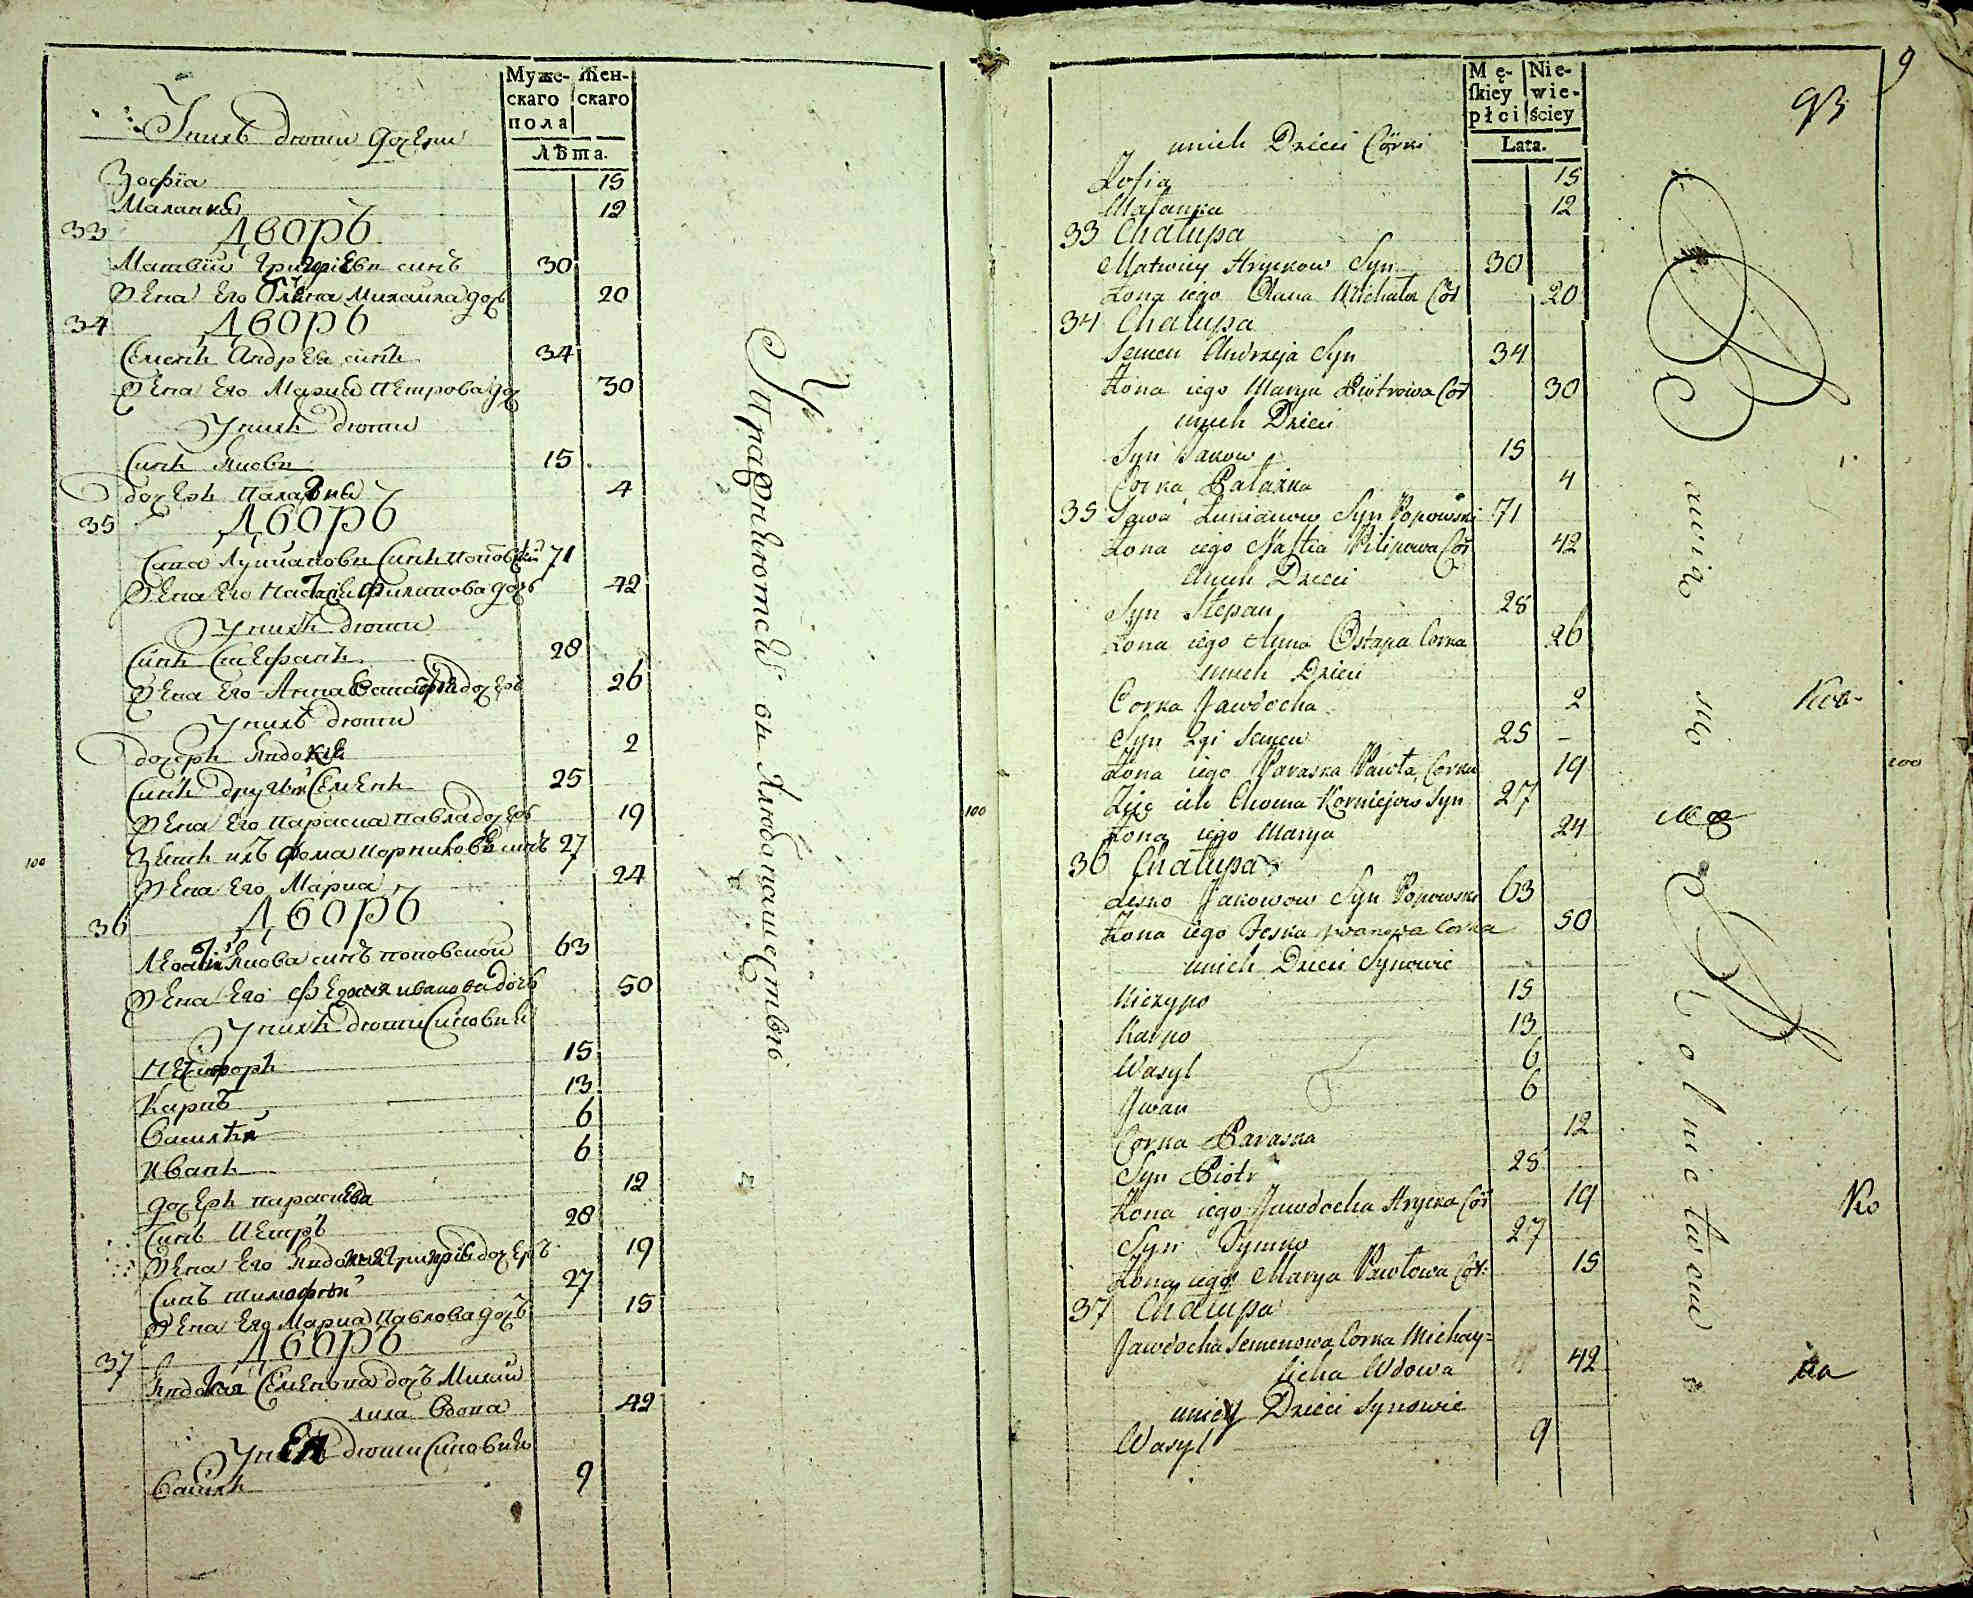 Муже- Жен-
скаго скаго
пола
Лѣта.
Унихъ дюти дочери
Зофіа 15
Маланка 12
33 Дворъ
Матвій Григоріевъ синъ 30
Жена его Олена Михайла доч 20
34 Дворъ
Семенъ Андрея синъ 34
Жена его Мариа Петрова доч 30
Унихъ дюти
Синъ Яковъ 15
дочеръ Палажка 4
35 Дворъ
Сава Лукиановъ Синъ поповскій 71
Жена его Настасія Филипова доч 42
Унихъ дюти
Синъ Стефанъ 28
Жена его Анна дочеръ 26
Унихъ дюти
дочеръ Явдокія 2
Синъ другій Семенъ 25
Жена его Параска Павла дочеръ 19
Зять ихъ Фома синъ 27
Жена его Мариа 24
36 Дворъ
Якова синъ поповской 63
Жена его иванова дочъ 50
Унихъ дюти Синовии
Некифоръ 15
Карпъ 13
Василій 6
Иванъ 6
дочеръ параскева 12
Синъ Петръ 28
Жена его Явдокия дочеръ 19
Синъ тимофѣй 27
Жена его Мариа Павлова доч 15
37 Дворъ
Явдокия Семенова дочъ Михай
лиха Вдова 42
дюти Синовии
Василь 9
100
100
Mę- Nie-
ſkiey wie-
płci ściey
Lata.
9
93
unich Dzieci Córki
Zofia 15
Małanka 12
33 Chałupa
Matwiy Hryckow Syn 30
Żona iego Olena Michała Cór 20
34 Chałupa
Semen Andrzeja Syn 34
Żona iego Marya Piotrowa Cór 30
unich Dzieci
Syn Jakow 15
Corka Pałażka 4
35 Sawa Łukianow Syn Popowski 71
Żona iego Nastia Pilipowa Cór 42
unich Dzieci
Syn Stepan 28
Żona iego Anna Ostapa Corka 26
unich Dzieci
Corka Jawdocha 2
Syn 2gi Semen 25
Żona iego Paraska Pawła Corka 19
Zięć ich Choma Korniejow Syn 27
Żona iego Marya 24
36 Chałupa
Lesko Jakowow Syn Popowski 63
Żona iego Feska Iwanowa Corka 50
unich Dzieci Synowie
Niczypo 15
Karpo 13
Wasyl 6
Jwan 6
Corka Paraska 12
Syn Piotr 28
Żona iego Jawdocha Hrycka Cór 19
Syn Tymko 27
Żona iego Marya Pawłowa Cór: 15
37 Chałupa
Jawdocha Semenowa Corka Michay=
licha Wdowa 42
uniey Dzieci Synowie
Wasyl 9
Ko
100